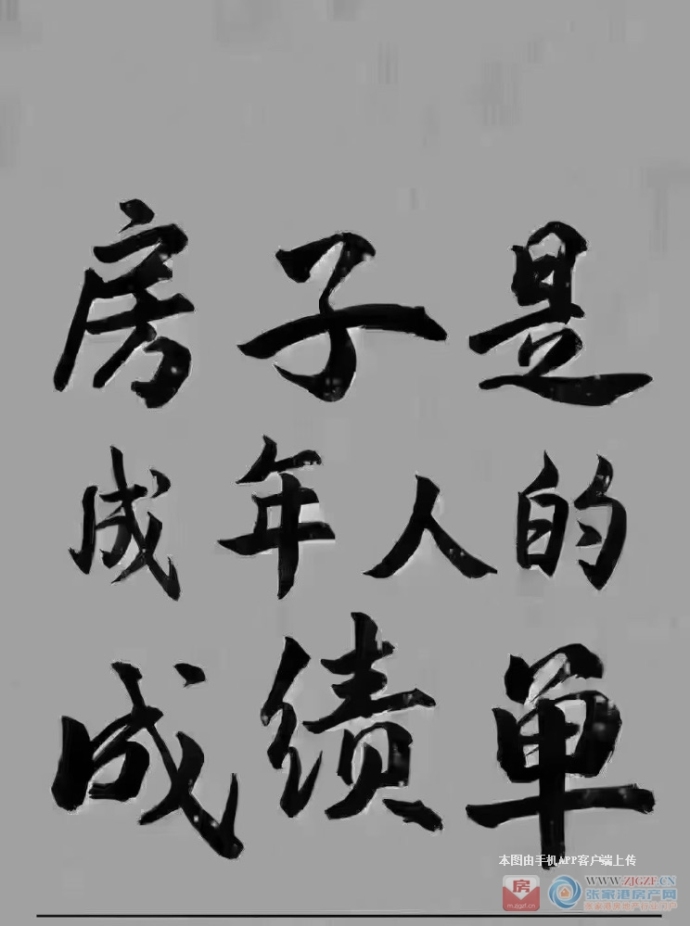 房子是
成年人的
成绩单
本图由手机APP客户端上传
房
WWW.ZJGZF.CN
张家港房产网